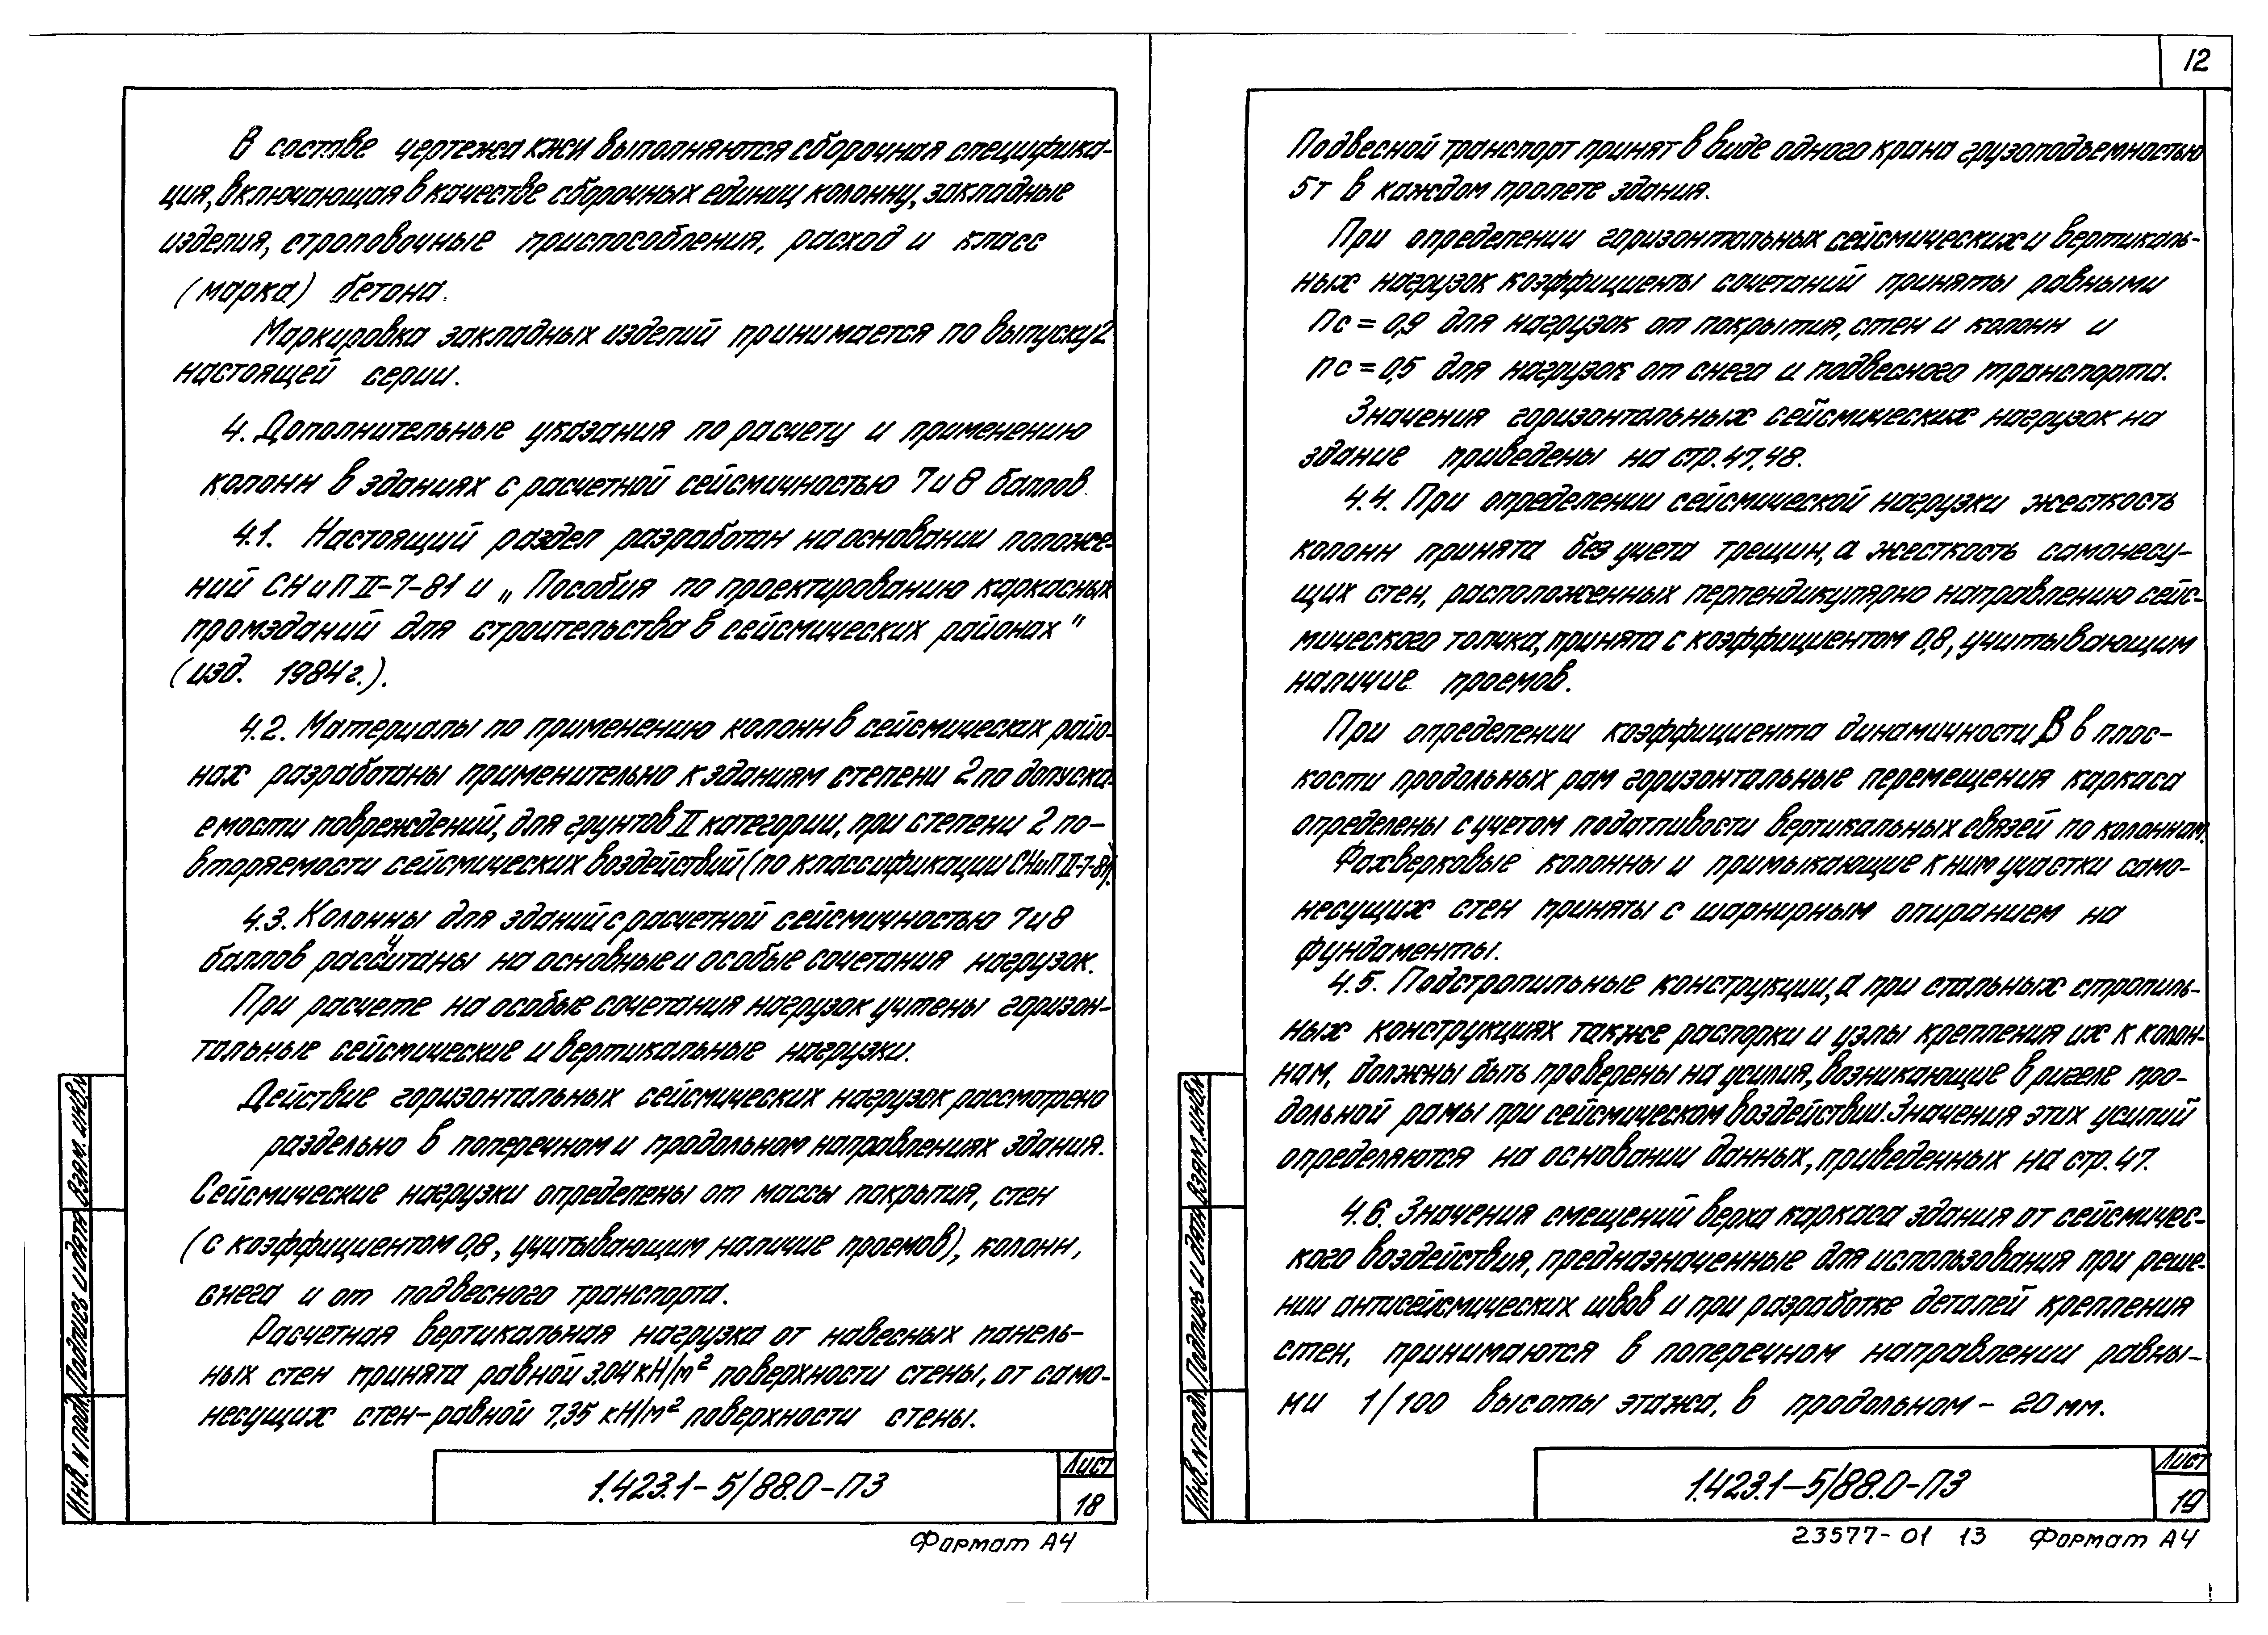 В составе чертежа КЖИ выполняются сборочная специфика-
ция, включающая в качестве сборочных единиц колонну, закладные
изделия, строповочные приспособления, расход и класс
(марка) бетона.
Маркировка закладных изделий принимается по выпуску 2
настоящей серии.
4. Дополнительные указания по расчету и применению
колонн в зданиях с расчетной сейсмичностью 7 и 8 баллов.
4.1. Настоящий раздел разработан на основании положе-
ний СНиП II-7-81 и „Пособия по проектированию каркасных
промзданий для строительства в сейсмических районах"
(изд. 1984г.).
4.2. Материалы по применению колонн в сейсмических райо-
нах разработаны применительно к зданиям степени 2 по допуска-
емости повреждений, для грунтов II категории, при степени 2 по-
вторяемости сейсмических воздействий (по классификации СНиП II-7-81).
4.3. Колонны для зданий с расчетной сейсмичностью 7 и 8
баллов рассчитаны на основные и особые сочетания нагрузок.
При расчете на особые сочетания нагрузок учтены горизон-
тальные сейсмические и вертикальные нагрузки.
Действие горизонтальных сейсмических нагрузок рассмотрено
раздельно в поперечном и продольном направлениях здания.
Сейсмические нагрузки определены от массы покрытия, стен
(с коэффициентом 0,8, учитывающим наличие проемов), колонн,
снега и от подвесного транспорта.
Расчетная вертикальная нагрузка от навесных панель-
ных стен принята равной 3.04 кН/м² поверхности стены, от само-
несущих стен-равной 7,35 кН/м² поверхности стены.
1.423.1-5/88.0-ПЗ
Лист
18
Формат А4
Взам. инв. №
Подпись и дата
Инв. № подл.
12
Подвесной транспорт принят в виде одного крана грузоподъемностью
5т в каждом пролете здания.
При определении горизонтальных сейсмических и вертикаль-
ных нагрузок коэффициенты сочетаний приняты равными
nc = 0,9 для нагрузок от покрытия, стен и колонн и
nc = 0,5 для нагрузок от снега и подвесного транспорта.
Значения горизонтальных сейсмических нагрузок на
здание приведены на стр. 47, 48.
4.4. При определении сейсмической нагрузки жесткость
колонн принята без учета трещин, а жесткость самонесу-
щих стен, расположенных перпендикулярно направлению сейс-
мического толчка, принята с коэффициентом 0,8, учитывающим
наличие проемов.
При определении коэффициента динамичности β в плос-
кости продольных рам горизонтальные перемещения каркаса
определены с учетом податливости вертикальных связей по колоннам.
Фахверковые колонны и примыкающие к ним участки само-
несущих стен приняты с шарнирным опиранием на
фундаменты.
4.5. Подстропильные конструкции, а при стальных стропиль-
ных конструкциях также распорки и узлы крепления их к колон-
нам, должны быть проверены на усилия, возникающие в ригеле про-
дольной рамы при сейсмическом воздействии. Значения этих усилий
определяются на основании данных, приведенных на стр. 47.
4.6. Значения смещений верха каркаса здания от сейсмичес-
кого воздействия, предназначенные для использования при реше-
нии антисейсмических швов и при разработке деталей крепления
стен, принимаются в поперечном направлении равны-
ми 1/100 высоты этажа, в продольном - 20 мм.
1.423.1-5/88.0-ПЗ
Лист
19
23577-01 13 Формат А4
Взам. инв. №
Подпись и дата
Инв. № подл.